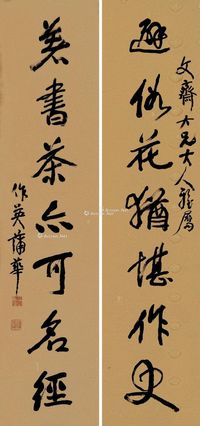 文齋大兄大人雅屬
避俗花猶堪作史
著書茶亦可名經
作英蒲華